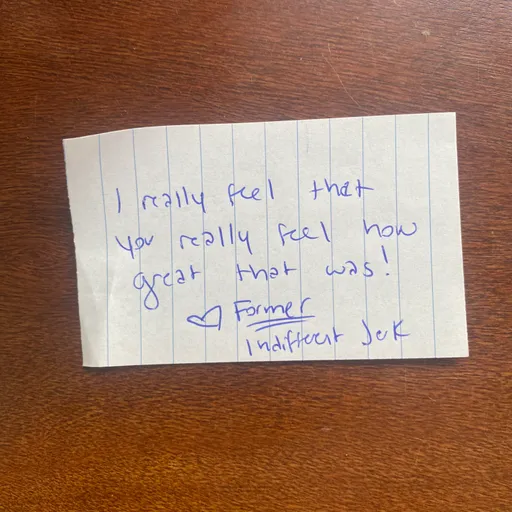 I really feel that
you really feel how
great that was!
♡ Former
Indifferent Jerk